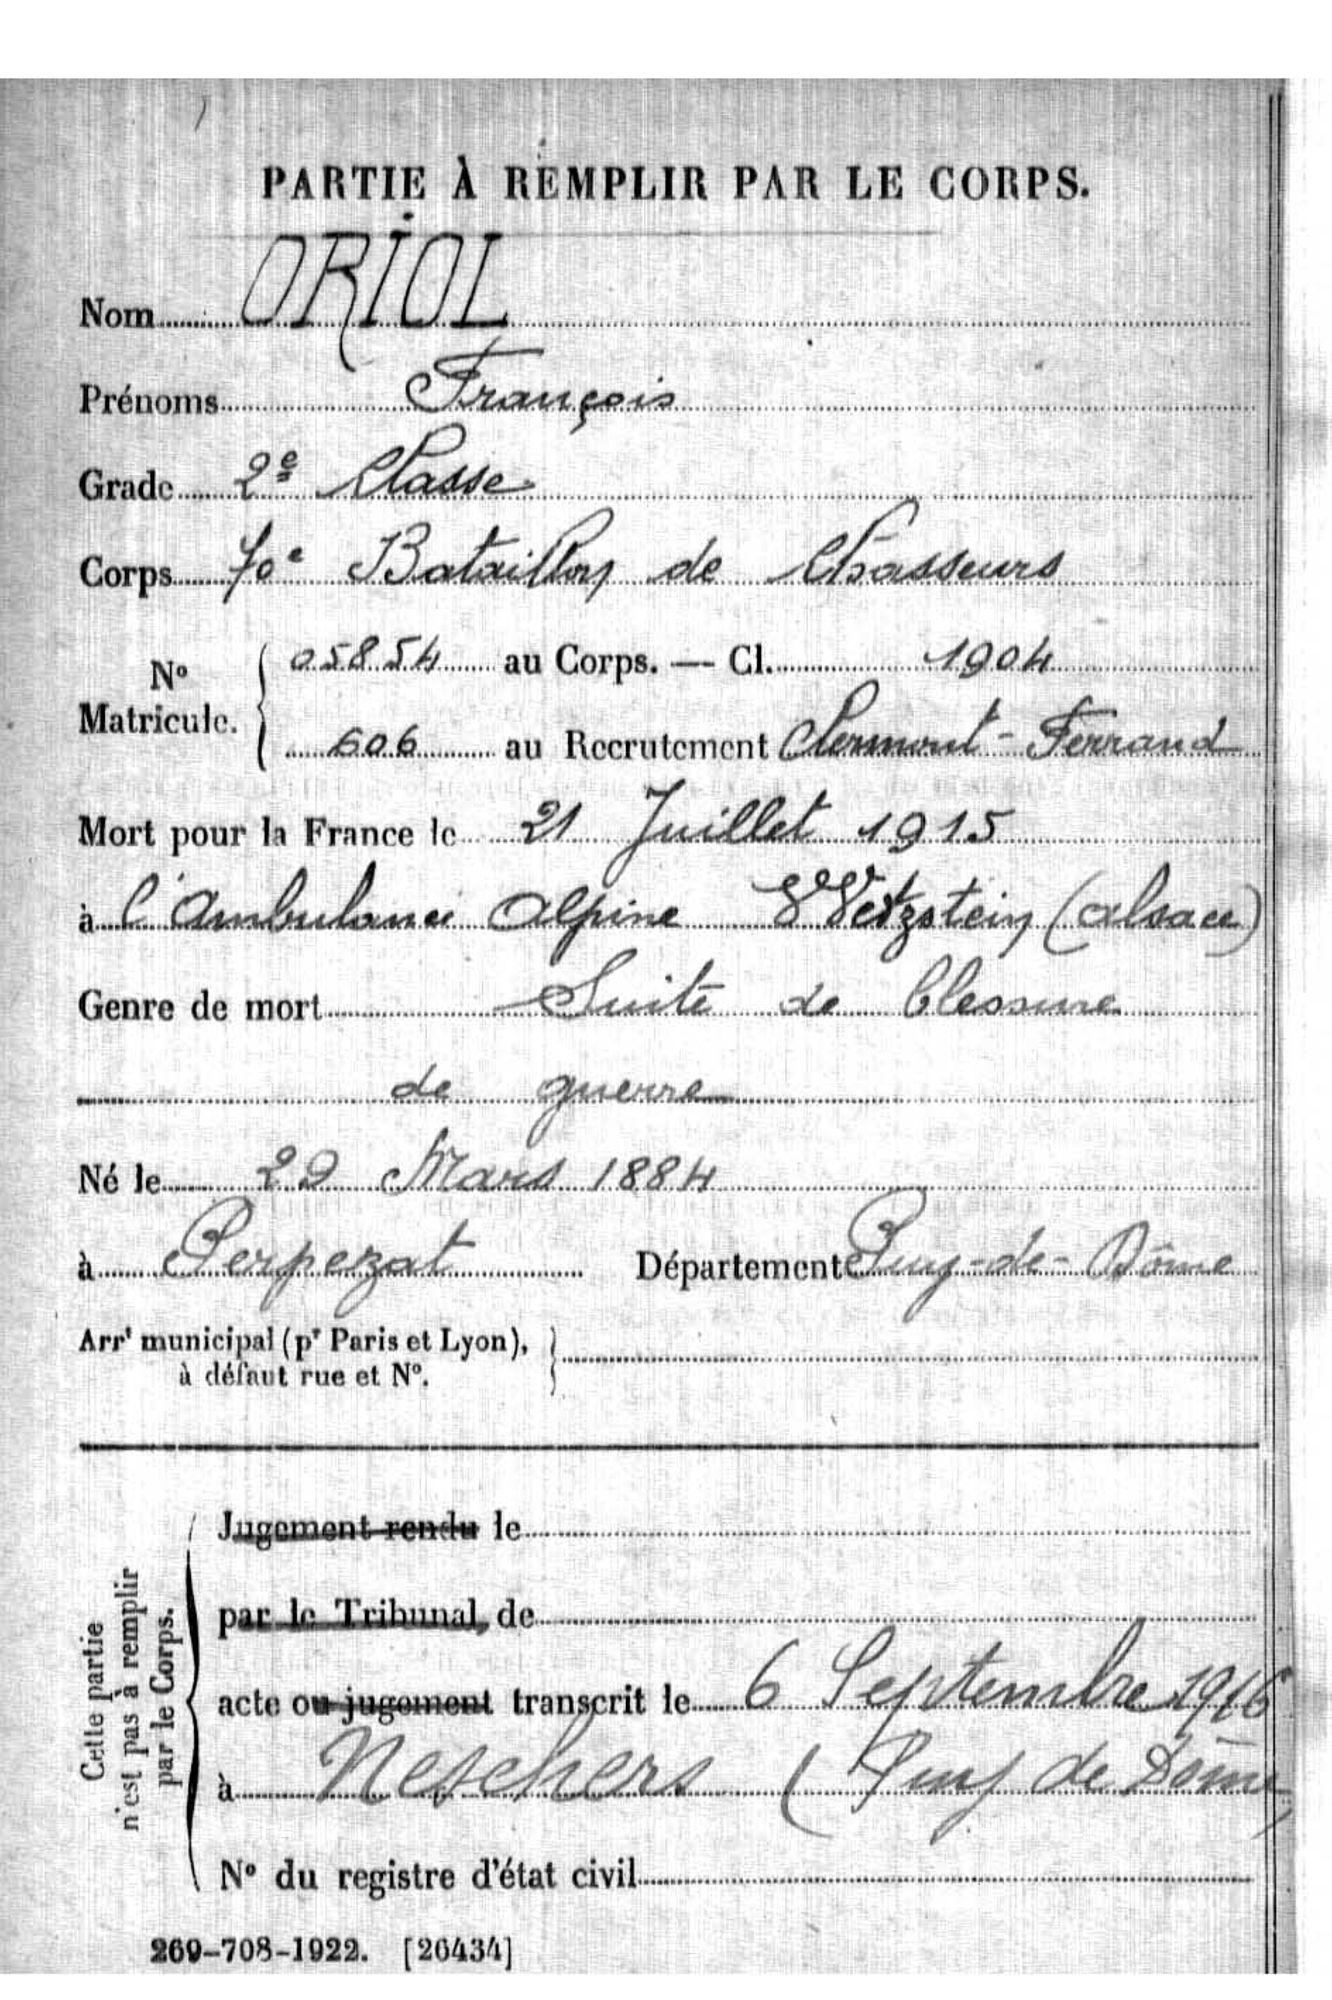 PARTIE À REMPLIR PAR LE CORPS.
Nom ORIOL
Prénoms François
Grade 2e Classe
Corps 70e Bataillon de Chasseurs
No Matricule. { 05854 au Corps. — Cl. 1904
606 au Recrutement Clermont-Ferrand
Mort pour la France le 21 Juillet 1915
à l'Ambulance Alpine Wetzstein (alsace)
Genre de mort Suite de blessure
de guerre
Né le 29 Mars 1884
à Perpezat Département Puy-de-Dôme
Arrt municipal (pr Paris et Lyon),
à défaut rue et No.
Cette partie
n'est pas à remplir
par le Corps.
Jugement rendu le
par le Tribunal de
acte ou jugement transcrit le 6 Septembre 1916
à Neschers (Puy de Dôme)
No du registre d'état civil
269-708-1922. [26434]